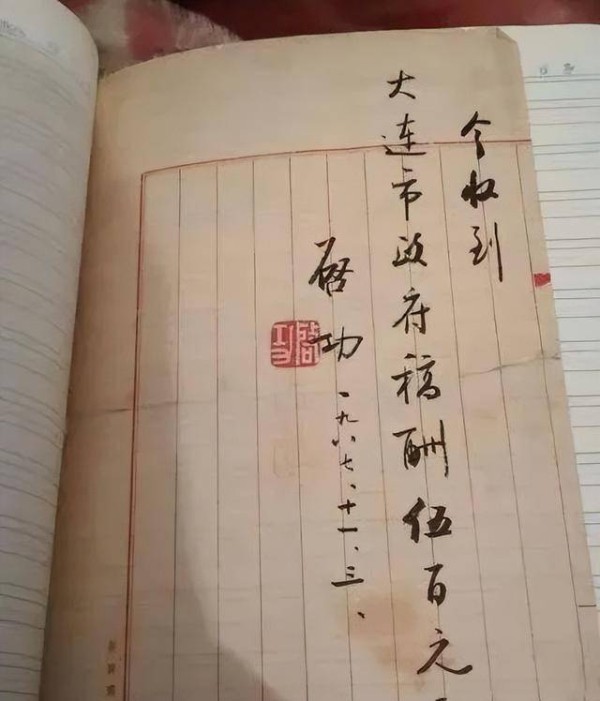 今收到
大連市政府稿酬伍百元
啓功 一九八七、十一、三、
啓功